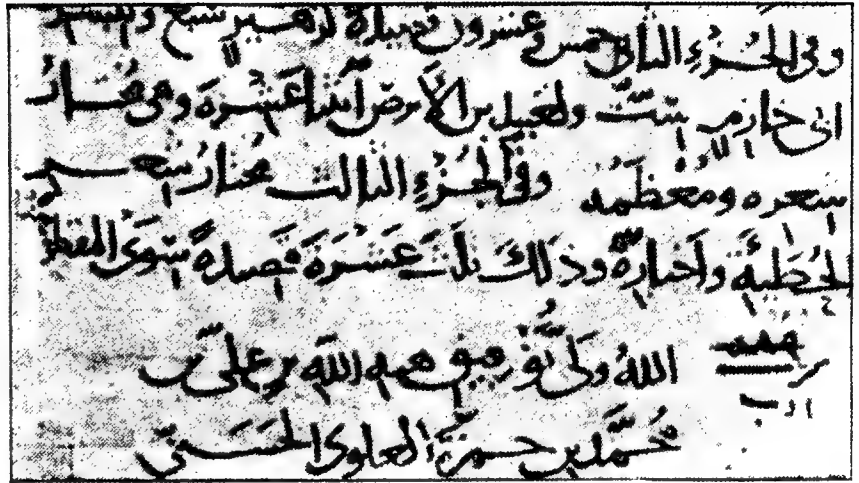 وفى الجزء الثانى خمس وعشرون قصيدة لزهير سبع ولبشر
ابى خازم ستّ ولعبيد بن الأبرص اثنتا عشرة وهى مختار
شعره ومعظمه وفى الجزء الثالث مختار شعر
الحُطَيئة وأخباره وذلك ثلث عشرة قصيدة سوى
الله ولىّ توفيق هبه الله بن على بن
محمّد بن حمزة العلوى الحسنىّ